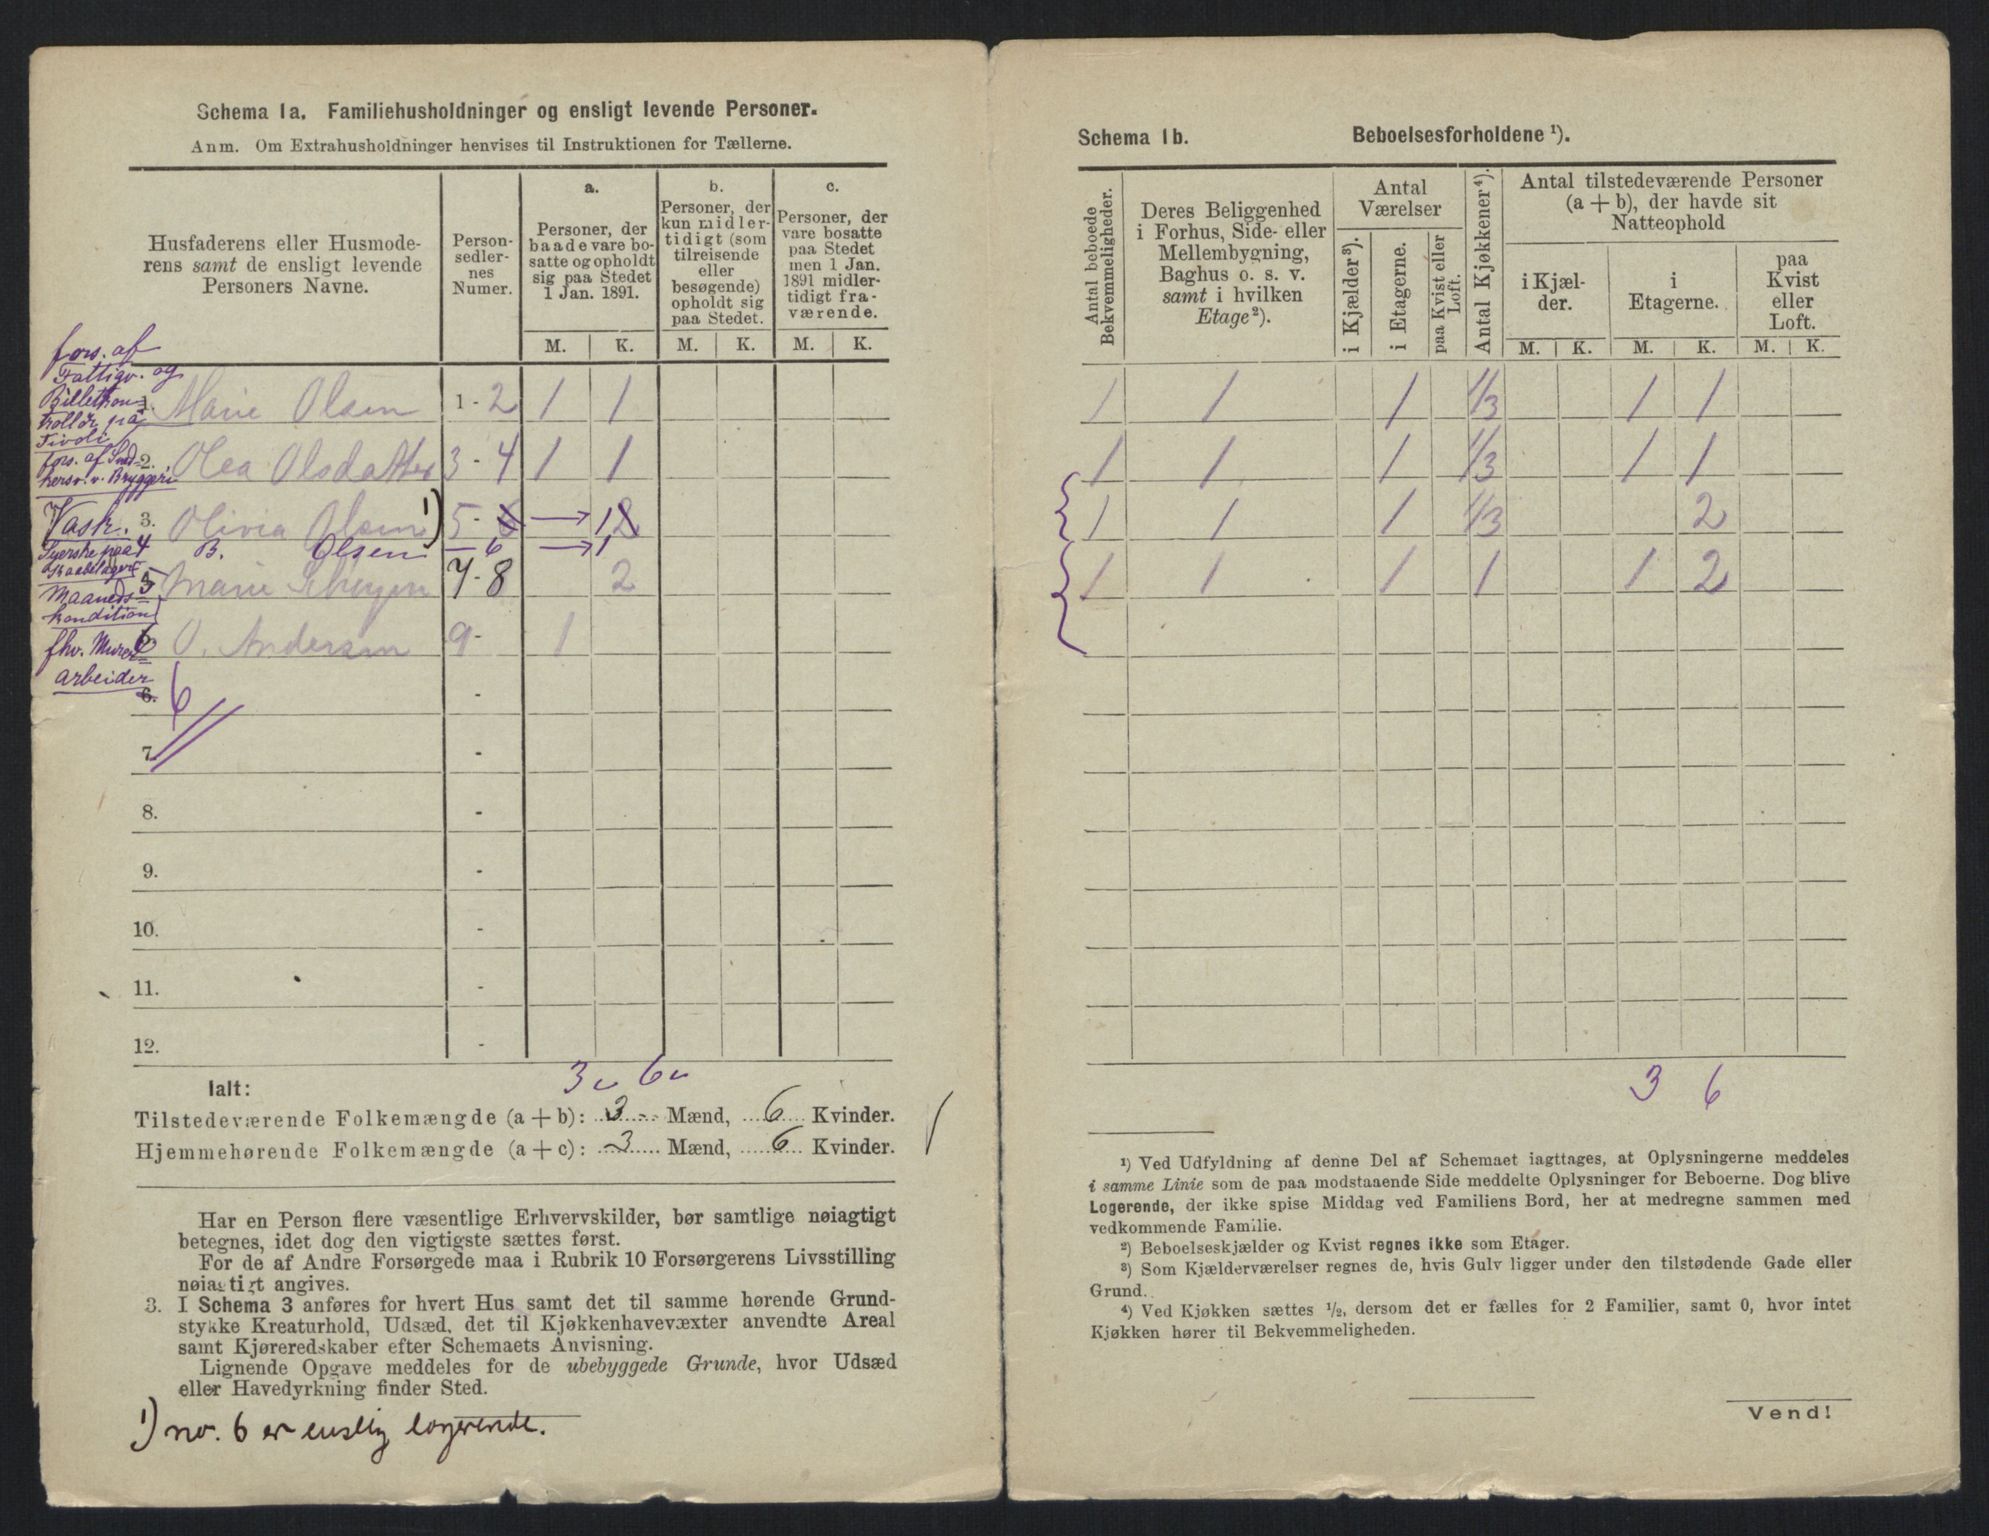 Schema 1a. Familiehusholdninger og ensligt levende Personer.
Anm. Om Extrahusholdninger henvises til Instruktionen for Tællerne.
Husfaderens eller Husmode-
rens samt de ensligt levende
Personers Navne.
Person-
sedler-
nes
Numer.
a.
Personer, der
baade vare bo-
satte og opholdt
sig paa Stedet
1 Jan. 1891.
b.
Personer, der
kun midler-
tidigt (som
tilreisende
eller
besøgende)
opholdt sig
paa Stedet.
c.
Personer, der
vare bosatte
paa Stedet
men 1 Jan.
1891 midler-
tidigt fra-
værende.
M. K. M. K. M. K.
fors. af
Fattigv. og
Billetkon=
trollør på
Tivoli
1. Marie Olsen 1 - 2 1 1
fors. af
hersv. v. Bryggeri
2. Olea Olsdatter 3 - 4 1 1
Vask. 3. Olivia Olsen 1) 5 - 6 1 2
Syerske paa 4 B. Olsen - 6 1
Kaabelager
5 Marie 7 - 8 2
Maaneds=
kondition
fhv. Murer=
arbeider
6 O. Andersen 9 - 1
6. 6 -
7. -
8. -
9. -
10. -
11. -
12. -
3 6
Ialt:
Tilstedeværende Folkemængde (a + b): 3 Mænd, 6 Kvinder.
Hjemmehørende Folkemængde (a + c): 3 Mænd, 6 Kvinder.
Har en Person flere væsentlige Erhvervskilder, bør samtlige nøiagtigt
betegnes, idet dog den vigtigste sættes først.
For de af Andre Forsørgede maa i Rubrik 10 Forsørgerens Livsstilling
nøiagtigt angives.
3. I Schema 3 anføres for hvert Hus samt det til samme hørende Grund-
stykke Kreaturhold, Udsæd, det til Kjøkkenhavevæxter anvendte Areal
samt Kjøreredskaber efter Schemaets Anvisning.
Lignende Opgave meddeles for de ubebyggede Grunde, hvor Udsæd
eller Havedyrkning finder Sted.
1) no. 6 er enslig logerende.
Schema 1b. Beboelsesforholdene 1).
Antal beboede
Bekvemmeligheder.
Deres Beliggenhed
i Forhus, Side- eller
Mellembygning,
Baghus o. s. v.
samt i hvilken
Etage 2).
Antal
Værelser
i Kjælder 3).
i Etagerne.
paa Kvist eller
Loft.
Antal Kjøkkener 4).
Antal tilstedeværende Personer
(a + b), der havde sit
Natteophold
i Kjæl-
der.
i
Etagerne.
paa
Kvist
eller
Loft.
M. K. M. K. M. K.
1 1 1 1/3 1 1
1 1 1 1/3 1 1
1 1 1 1/3 2
1 1 1 1 1 2
3 6
1) Ved Udfyldning af denne Del af Schemaet iagttages, at Oplysningerne meddeles
i samme Linie som de paa modstaaende Side meddelte Oplysninger for Beboerne. Dog blive
Logerende, der ikke spise Middag ved Familiens Bord, her at medregne sammen med
vedkommende Familie.
2) Beboelseskjælder og Kvist regnes ikke som Etager.
3) Som Kjælderværelser regnes de, hvis Gulv ligger under den tilstødende Gade eller
Grund.
4) Ved Kjøkken sættes 1/2, dersom det er fælles for 2 Familier, samt 0, hvor intet
Kjøkken hører til Bekvemmeligheden.
Vend!